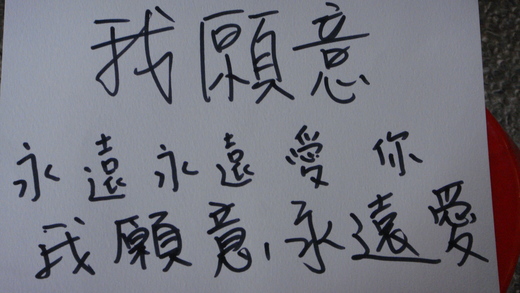 我願意
永遠永遠愛你
我願意,永遠愛